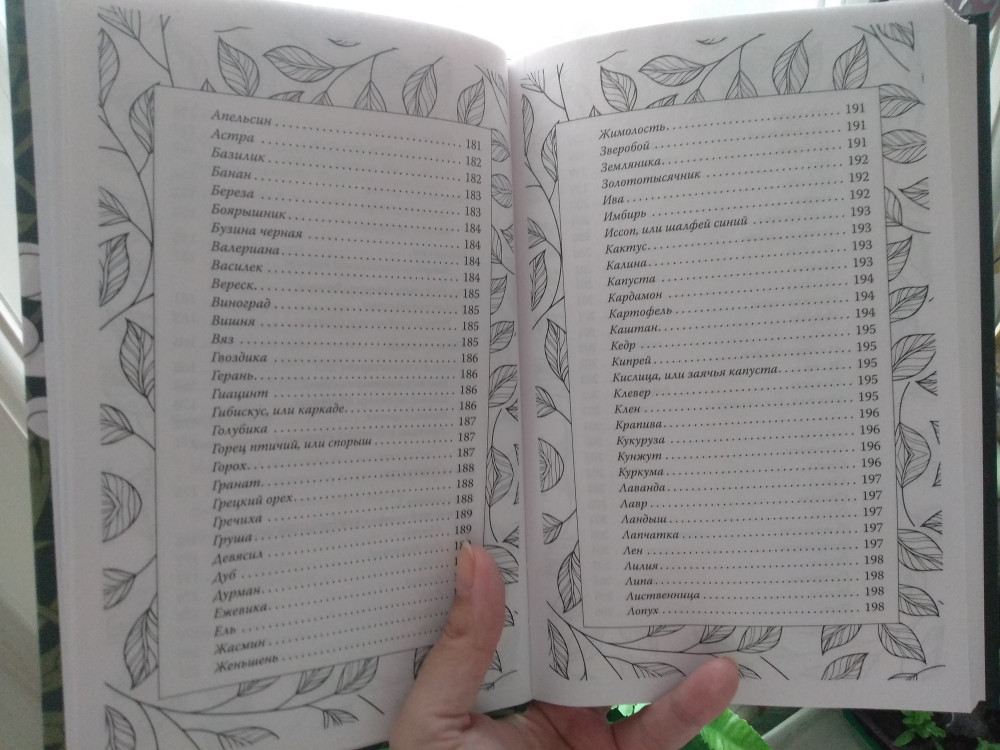 Апельсин ........................ 181
Астра ........................ 182
Базилик ........................ 182
Банан ........................ 183
Береза ........................ 183
Боярышник ........................ 184
Бузина черная ........................ 184
Валериана ........................ 184
Василек ........................ 184
Вереск ........................ 185
Виноград ........................ 185
Вишня ........................ 185
Вяз ........................ 185
Гвоздика ........................ 186
Герань ........................ 186
Гиацинт ........................ 186
Гибискус, или каркаде ........................ 186
Голубика ........................ 187
Горец птичий, или спорыш ........................ 187
Горох ........................ 187
Гранат ........................ 188
Грецкий орех ........................ 188
Гречиха ........................ 188
Груша ........................ 189
Девясил ........................ 189
Дуб ........................
Дурман ........................
Ежевика ........................
Ель ........................
Жасмин ........................
Женьшень ........................
Жимолость ........................ 191
Зверобой ........................ 191
Земляника ........................ 191
Золототысячник ........................ 192
Ива ........................ 192
Имбирь ........................ 192
Иссоп, или шалфей синий ........................ 193
Кактус ........................ 193
Калина ........................ 193
Капуста ........................ 193
Кардамон ........................ 194
Картофель ........................ 194
Каштан ........................ 194
Кедр ........................ 195
Кипрей ........................ 195
Кислица, или заячья капуста ........................ 195
Клевер ........................ 195
Клен ........................ 195
Крапива ........................ 196
Кукуруза ........................ 196
Кунжут ........................ 196
Куркума ........................ 196
Лаванда ........................ 197
Лавр ........................ 197
Ландыш ........................ 197
Лапчатка ........................ 197
Лен ........................ 197
Лилия ........................ 198
Липа ........................ 198
Лиственница ........................ 198
Лопух ........................ 198